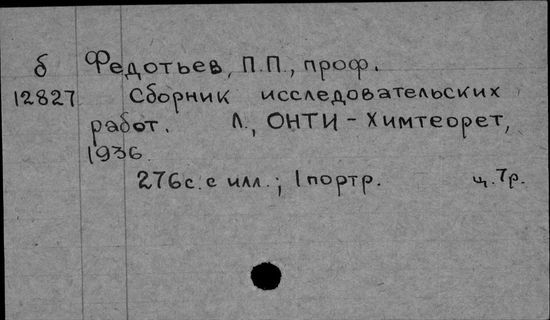 б Федотьев, П.П., проф.
12827 Сборник исследовательских
работ. Л., ОНТИ - Химтеорет,
1936.
276с. с илл.; 1 портр. ц. 7р.